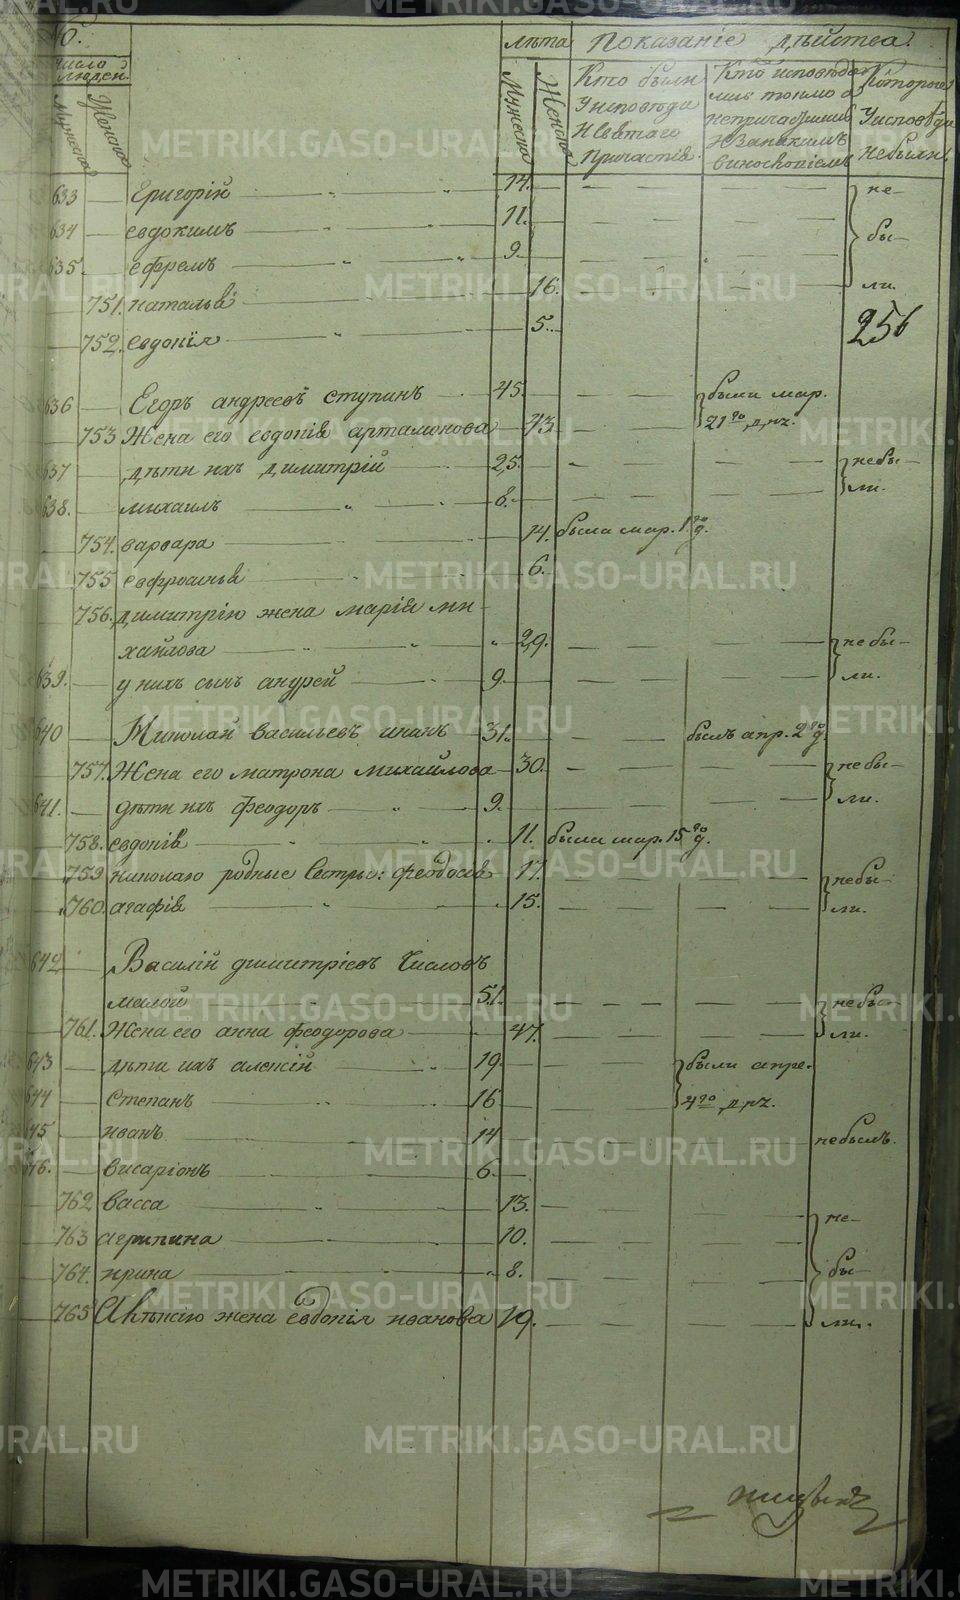 число людей. лѣта Показаніе дѣйства.
Мужеска Женска Мужеска Женска
Кто были У исповѣди И Святаго Причастія
Кто исповѣда лись токмо а непричастился И За какимъ виносповіемъ
Которые У исповѣди небыли.
633 Григорій 14. не-
634 евдокимъ 11. бы-
635. ефремъ 9. ли.
751. наталья 16.
752. евдокія 5. 256
636 Егоръ андреевъ ступинъ 45. были мар.
753 Жена его евдокія артамонова 43. 21го д,нz.
637 дѣти ихъ димитрій 25. небы-
638. михаилъ 8. ли.
754. варвара 14. была мар. 1го д.
755 евфросинья 6.
756. димитрію жена марія ми-
хаилова 29. небы-
639. у нихъ сынъ андрей 9. ли.
640 Николай васильевъ 31. былъ апр. 2го д.
757. Жена его матрона михайлова 30. небы-
641. дѣти ихъ феодоръ 9. ли.
758. евдокія 11. была мар. 15го д.
759 николаю родные Сестры: феодосія 17. небы-
760. агафія 15. ли.
642 Василій димитріевъ Числовъ
малой 51. небы-
761. Жена его анна феодорова 47. ли.
643 дѣти ихъ алексій 19. были апре.
644 степанъ 16 4го д,нz.
645 иванъ 14 небылъ.
646. висаріонъ 6.
762 васса 13. не-
763 агрипина 10.
764. ирина 8. бы-
765 Алексію жена евдокія иванова 19. ли.
METRIKI.GASO-URAL.RU